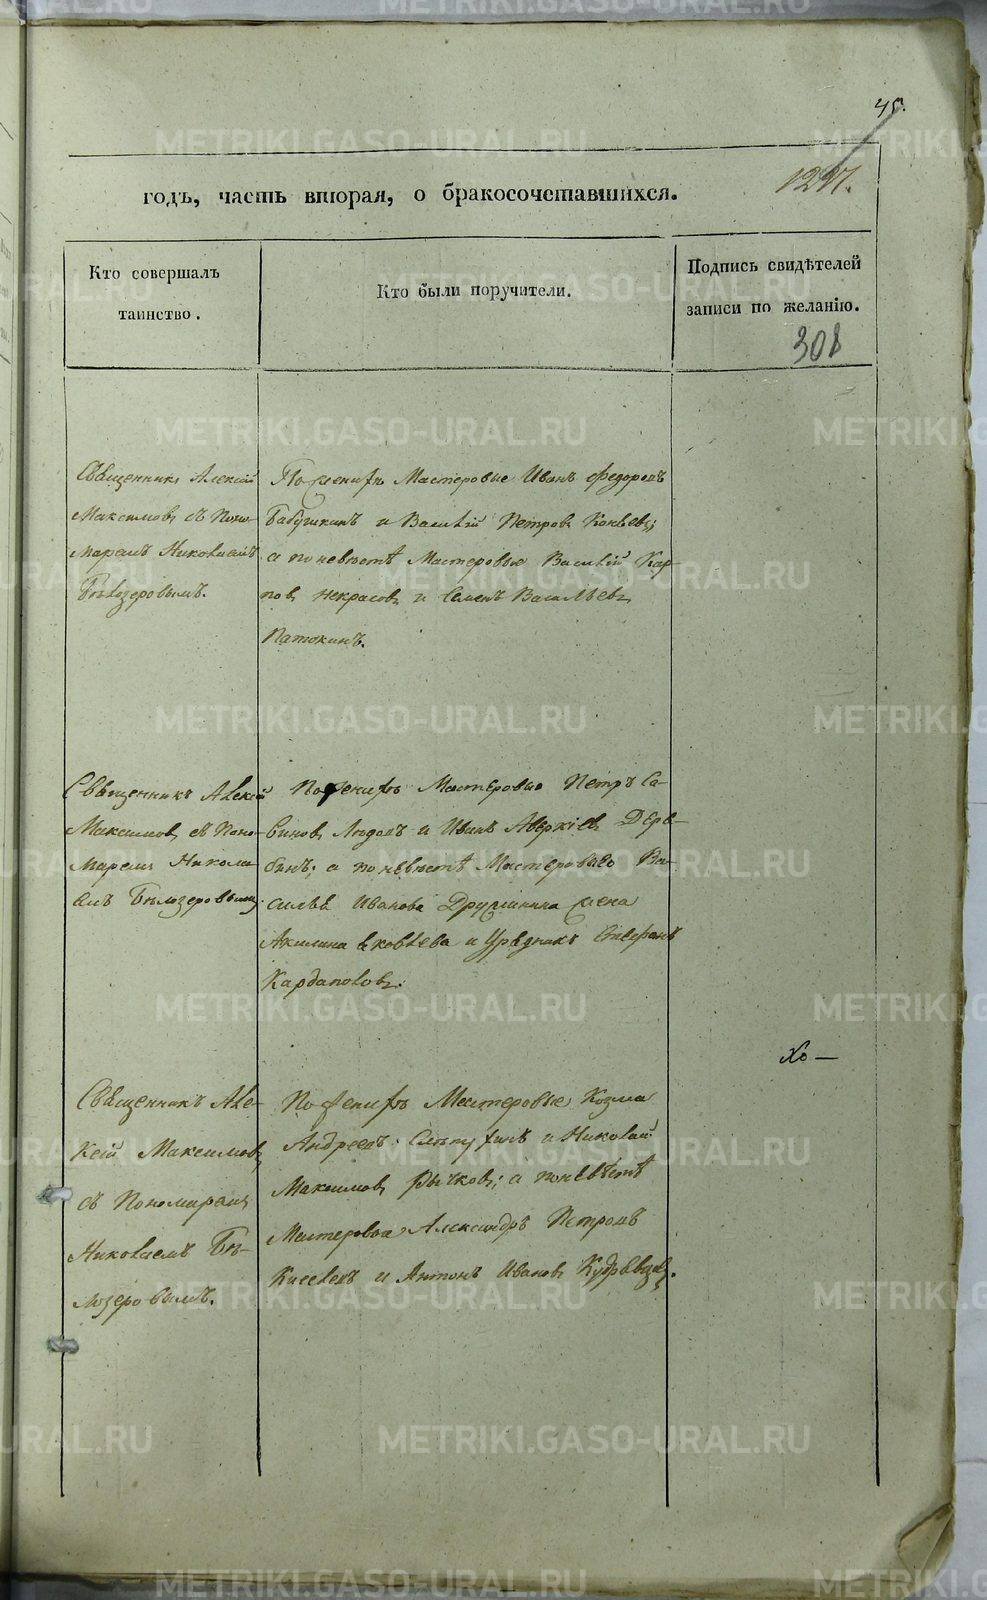 45.
1297.
годъ, часть вторая, о бракосочетавшихся.
Кто совершалъ
таинство.
Кто были поручители.
Подпись свидѣтелей
записи по желанію.
308
Священникъ Алексій
Максимовъ съ Поно-
маремъ Николаемъ
Бѣлозеровымъ.
По женихѣ Мастеровые Иванъ Федоровъ
Бабушкинъ и Василій Петровъ Коневъ;
а по невѣстѣ Мастеровые Василій Кар-
повъ Некрасовъ и Семенъ Васильевъ
Патокинъ.
Священникъ Алексій
Максимовъ съ Поно-
маремъ Никола-
емъ Бѣлозеровымъ.
По женихѣ Мастеровые Петръ Са-
виновъ и Иванъ Аверкіевъ Деря-
бинъ; а по невѣстѣ Мастероваго Ва-
силья Иванова Дружинина жена
Акилина Яковлева и Урядникъ Стефанъ
Кардаполовъ.
Хо —
Священникъ Але-
ксій Максимовъ
съ Пономаремъ
Николаемъ Бѣ-
лозеровымъ.
По женихѣ Мастеровые Козма
Андреевъ Слѣпухинъ и Николай
Максимовъ Рычковъ; а по невѣстѣ
Мастеровые Александръ Петровъ
Киселевъ и Антонъ Ивановъ Кудрявцовъ.
METRIKI.GASO-URAL.RU